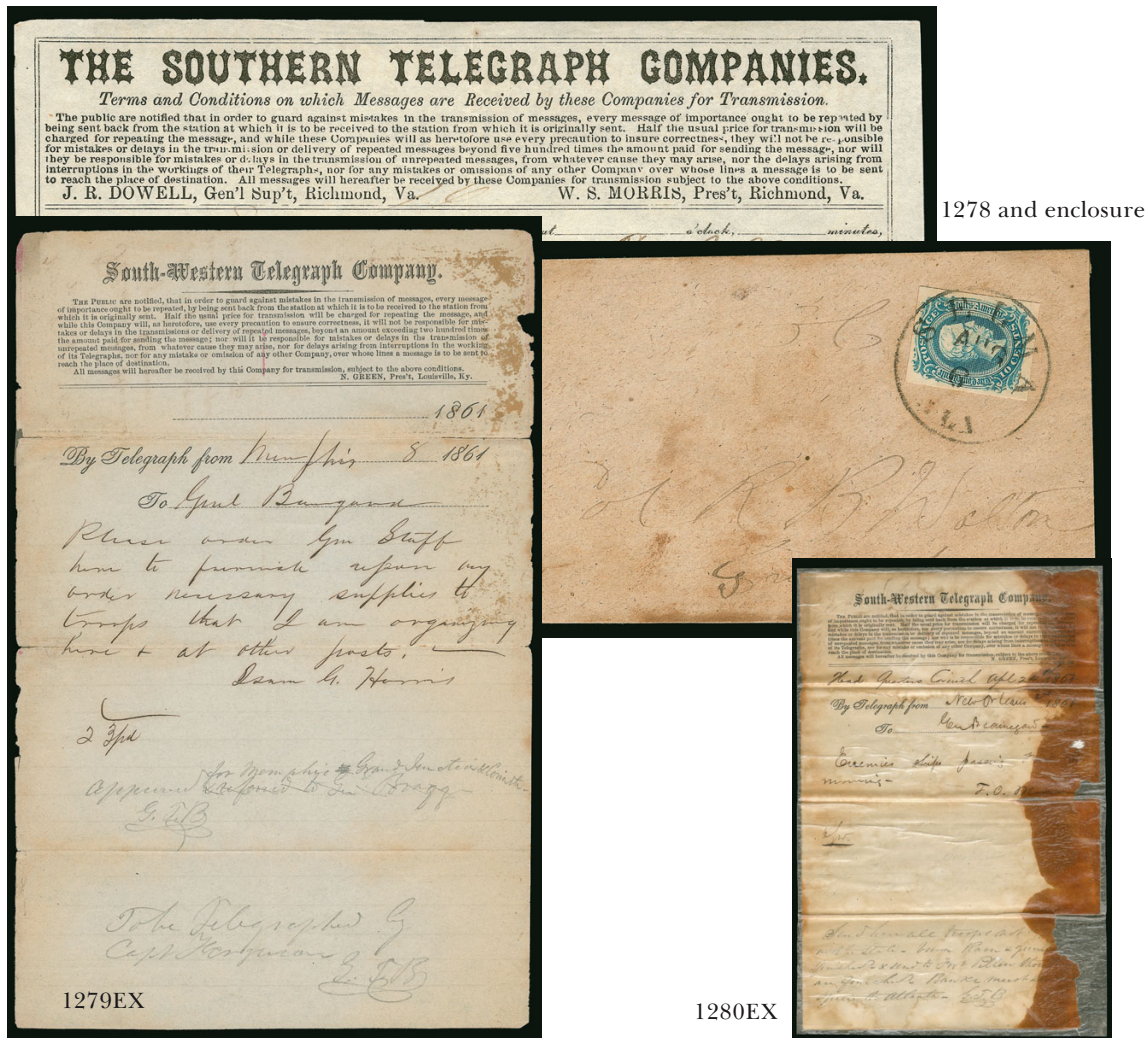 THE SOUTHERN TELEGRAPH COMPANIES.
Terms and Conditions on which Messages are Received by these Companies for Transmission.
The public are notified that in order to guard against mistakes in the transmission of messages, every message of importance ought to be repeated by
being sent back from the station at which it is to be received to the station from which it is originally sent. Half the usual price for transmission will be
charged for repeating the message, and while these Companies will as heretofore use every precaution to insure correctness, they will not be responsible
for mistakes or delays in the transmission or delivery of repeated messages beyond five hundred times the amount paid for sending the message, nor will
they be responsible for mistakes or delays in the transmission of unrepeated messages, from whatever cause they may arise, nor the delays arising from
interruptions in the workings of their Telegraphs, nor for any mistakes or omissions of any other Company over whose lines a message is to be sent
to reach the place of destination. All messages will hereafter be received by these Companies for transmission subject to the above conditions.
J. R. DOWELL, Gen'l Sup't, Richmond, Va. W. S. MORRIS, Pres't, Richmond, Va.
o'clock, minutes,
1278 and enclosure
South-Western Telegraph Company.
THE PUBLIC are notified, that in order to guard against mistakes in the transmission of messages, every message
of importance ought to be repeated, by being sent back from the station at which it is to be received to the station from
which it is originally sent. Half the usual price for transmission will be charged for repeating the message, and
while this Company will, as heretofore, use every precaution to ensure correctness, it will not be responsible for mis-
takes or delays in the transmissions or delivery of repeated messages, beyond an amount exceeding two hundred times
the amount paid for sending the message; nor will it be responsible for mistakes or delays in the transmission of
unrepeated messages, from whatever cause they may arise, nor for delays arising from interruptions in the working
of its Telegraphs, nor for any mistake or omission of any other Company, over whose lines a message is to be sent to
reach the place of destination.
All messages will hereafter be received by this Company for transmission, subject to the above conditions.
N. GREEN, Pres't, Louisville, Ky.
1861
By Telegraph from Memphis 8 1861
To Genl Beauregard
Please order Qm Staff
here to furnish upon my
order necessary supplies to
troops that I am organizing
here & at other posts.
Isham G. Harris
2 3/pd
for Memphis Grand Junction & Corinth
Approved & referred to Gen Bragg
G. T. B
To be Telegraphed by
Capt Ferguson
G. T. B
1279EX
SELMA
ALA
AUG
POSTAGE
The Confederate STATES
of America
10 CENTS
Col R B
South-Western Telegraph Company.
All messages will hereafter be received by this Company for transmission, subject to the above
N. GREEN, Pres't, Loui
Head Quarters Corinth Apl 24
By Telegraph from New Orleans 1861
To Gen Beauregard
Enemies ships passing
morning
T. O.
G T B
1280EX